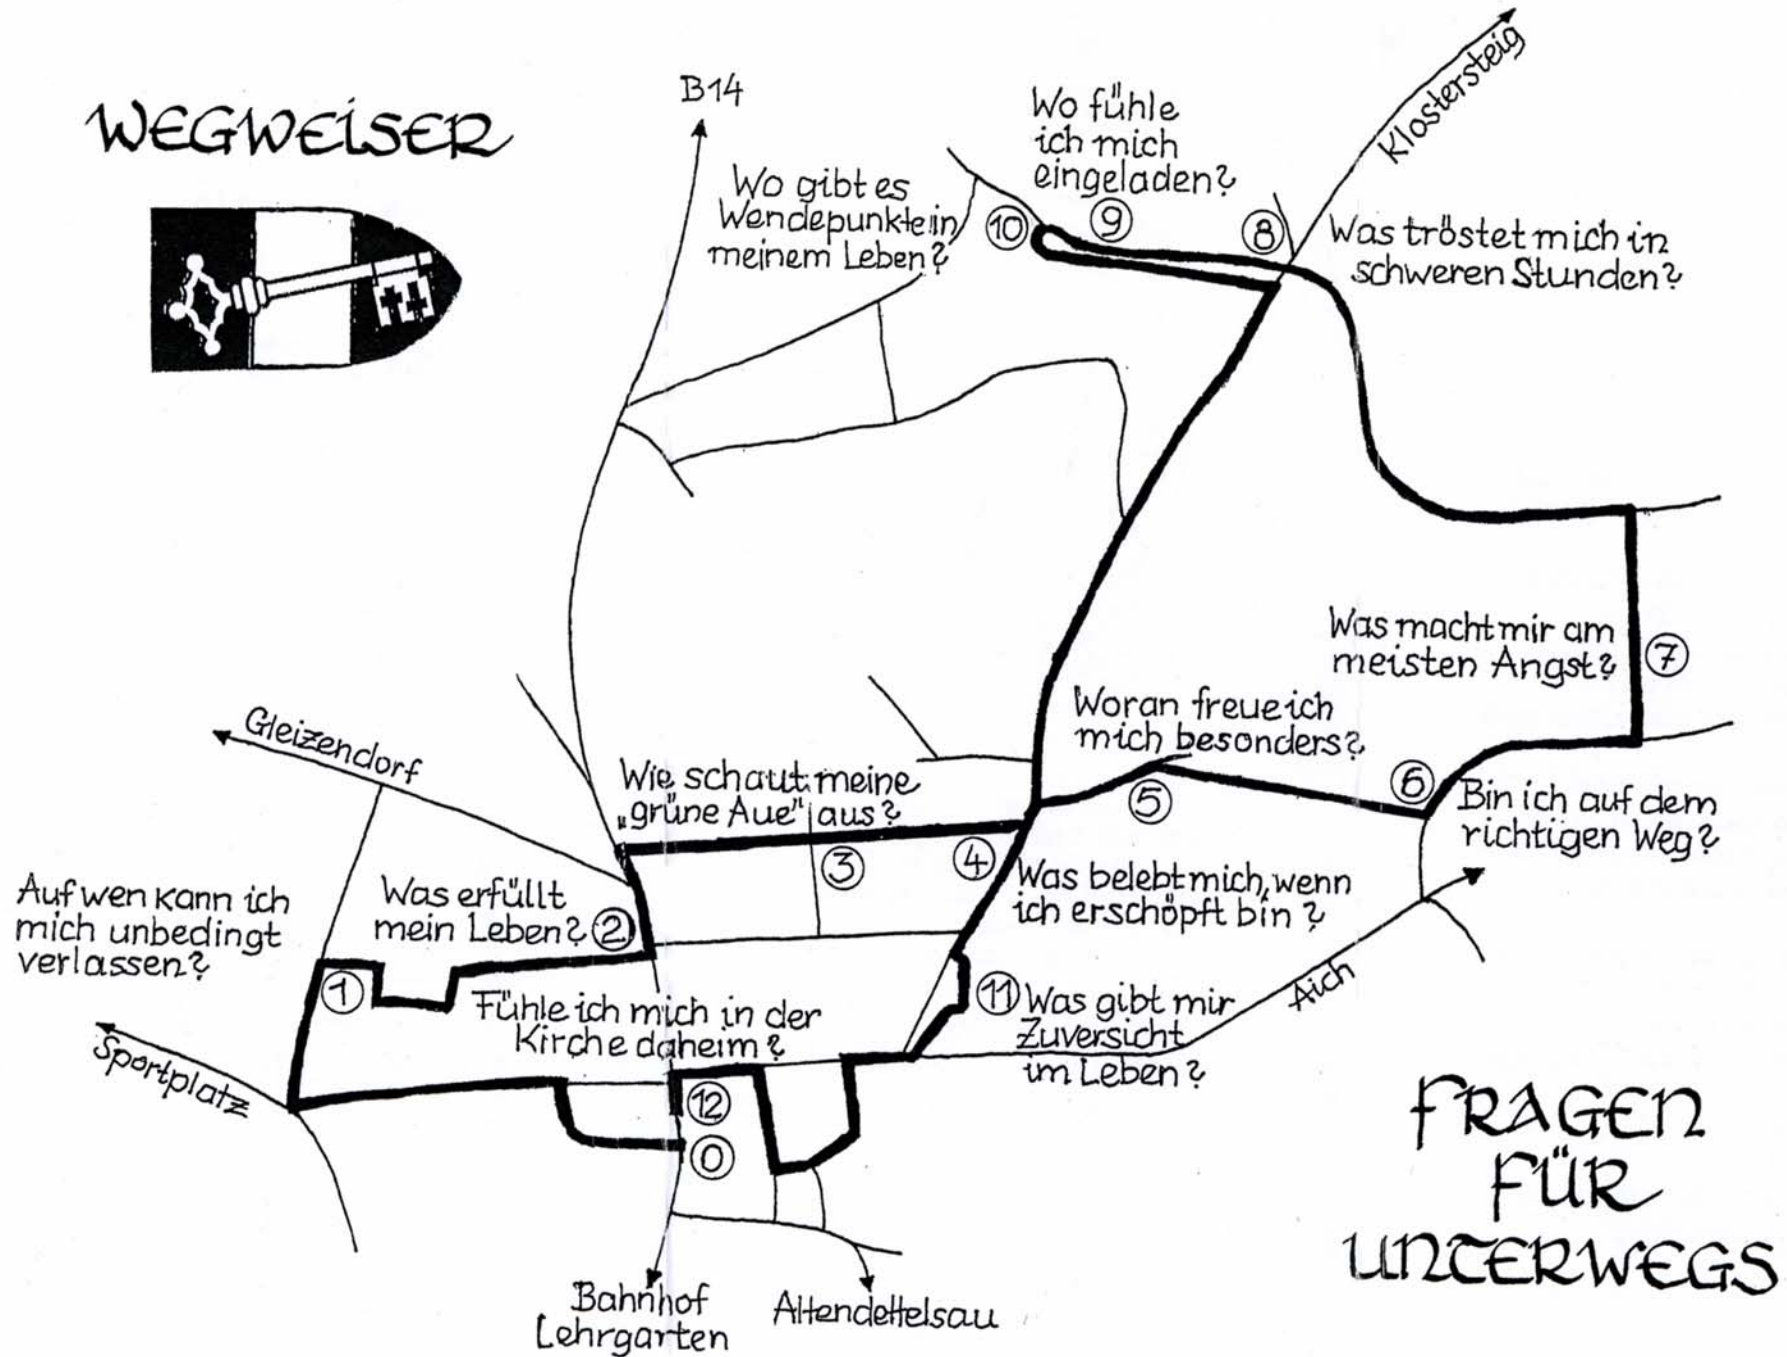 WEGWEISER
B14
Klostersteig
Wo fühle
ich mich
eingeladen?
Wo gibt es
Wendepunkte in
meinem Leben?
10
9
8
Was tröstet mich in
schweren Stunden?
Was macht mir am
meisten Angst?
7
Woran freue ich
mich besonders?
5
6
Bin ich auf dem
richtigen Weg?
Gleizendorf
Wie schaut meine
„grüne Aue" aus?
3
4
Was belebt mich, wenn
ich erschöpft bin?
Auf wen kann ich
mich unbedingt
verlassen?
1
Was erfüllt
mein Leben?
2
Fühle ich mich in der
Kirche daheim?
11
Was gibt mir
Zuversicht
im Leben?
Aich
Sportplatz
12
0
Bahnhof
Lehrgarten
Altendettelsau
FRAGEN
FÜR
UNTERWEGS